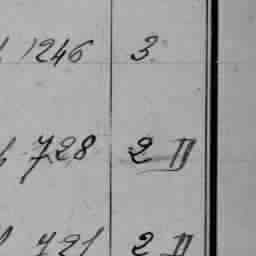 1246 3
728 2 II
721 2 II